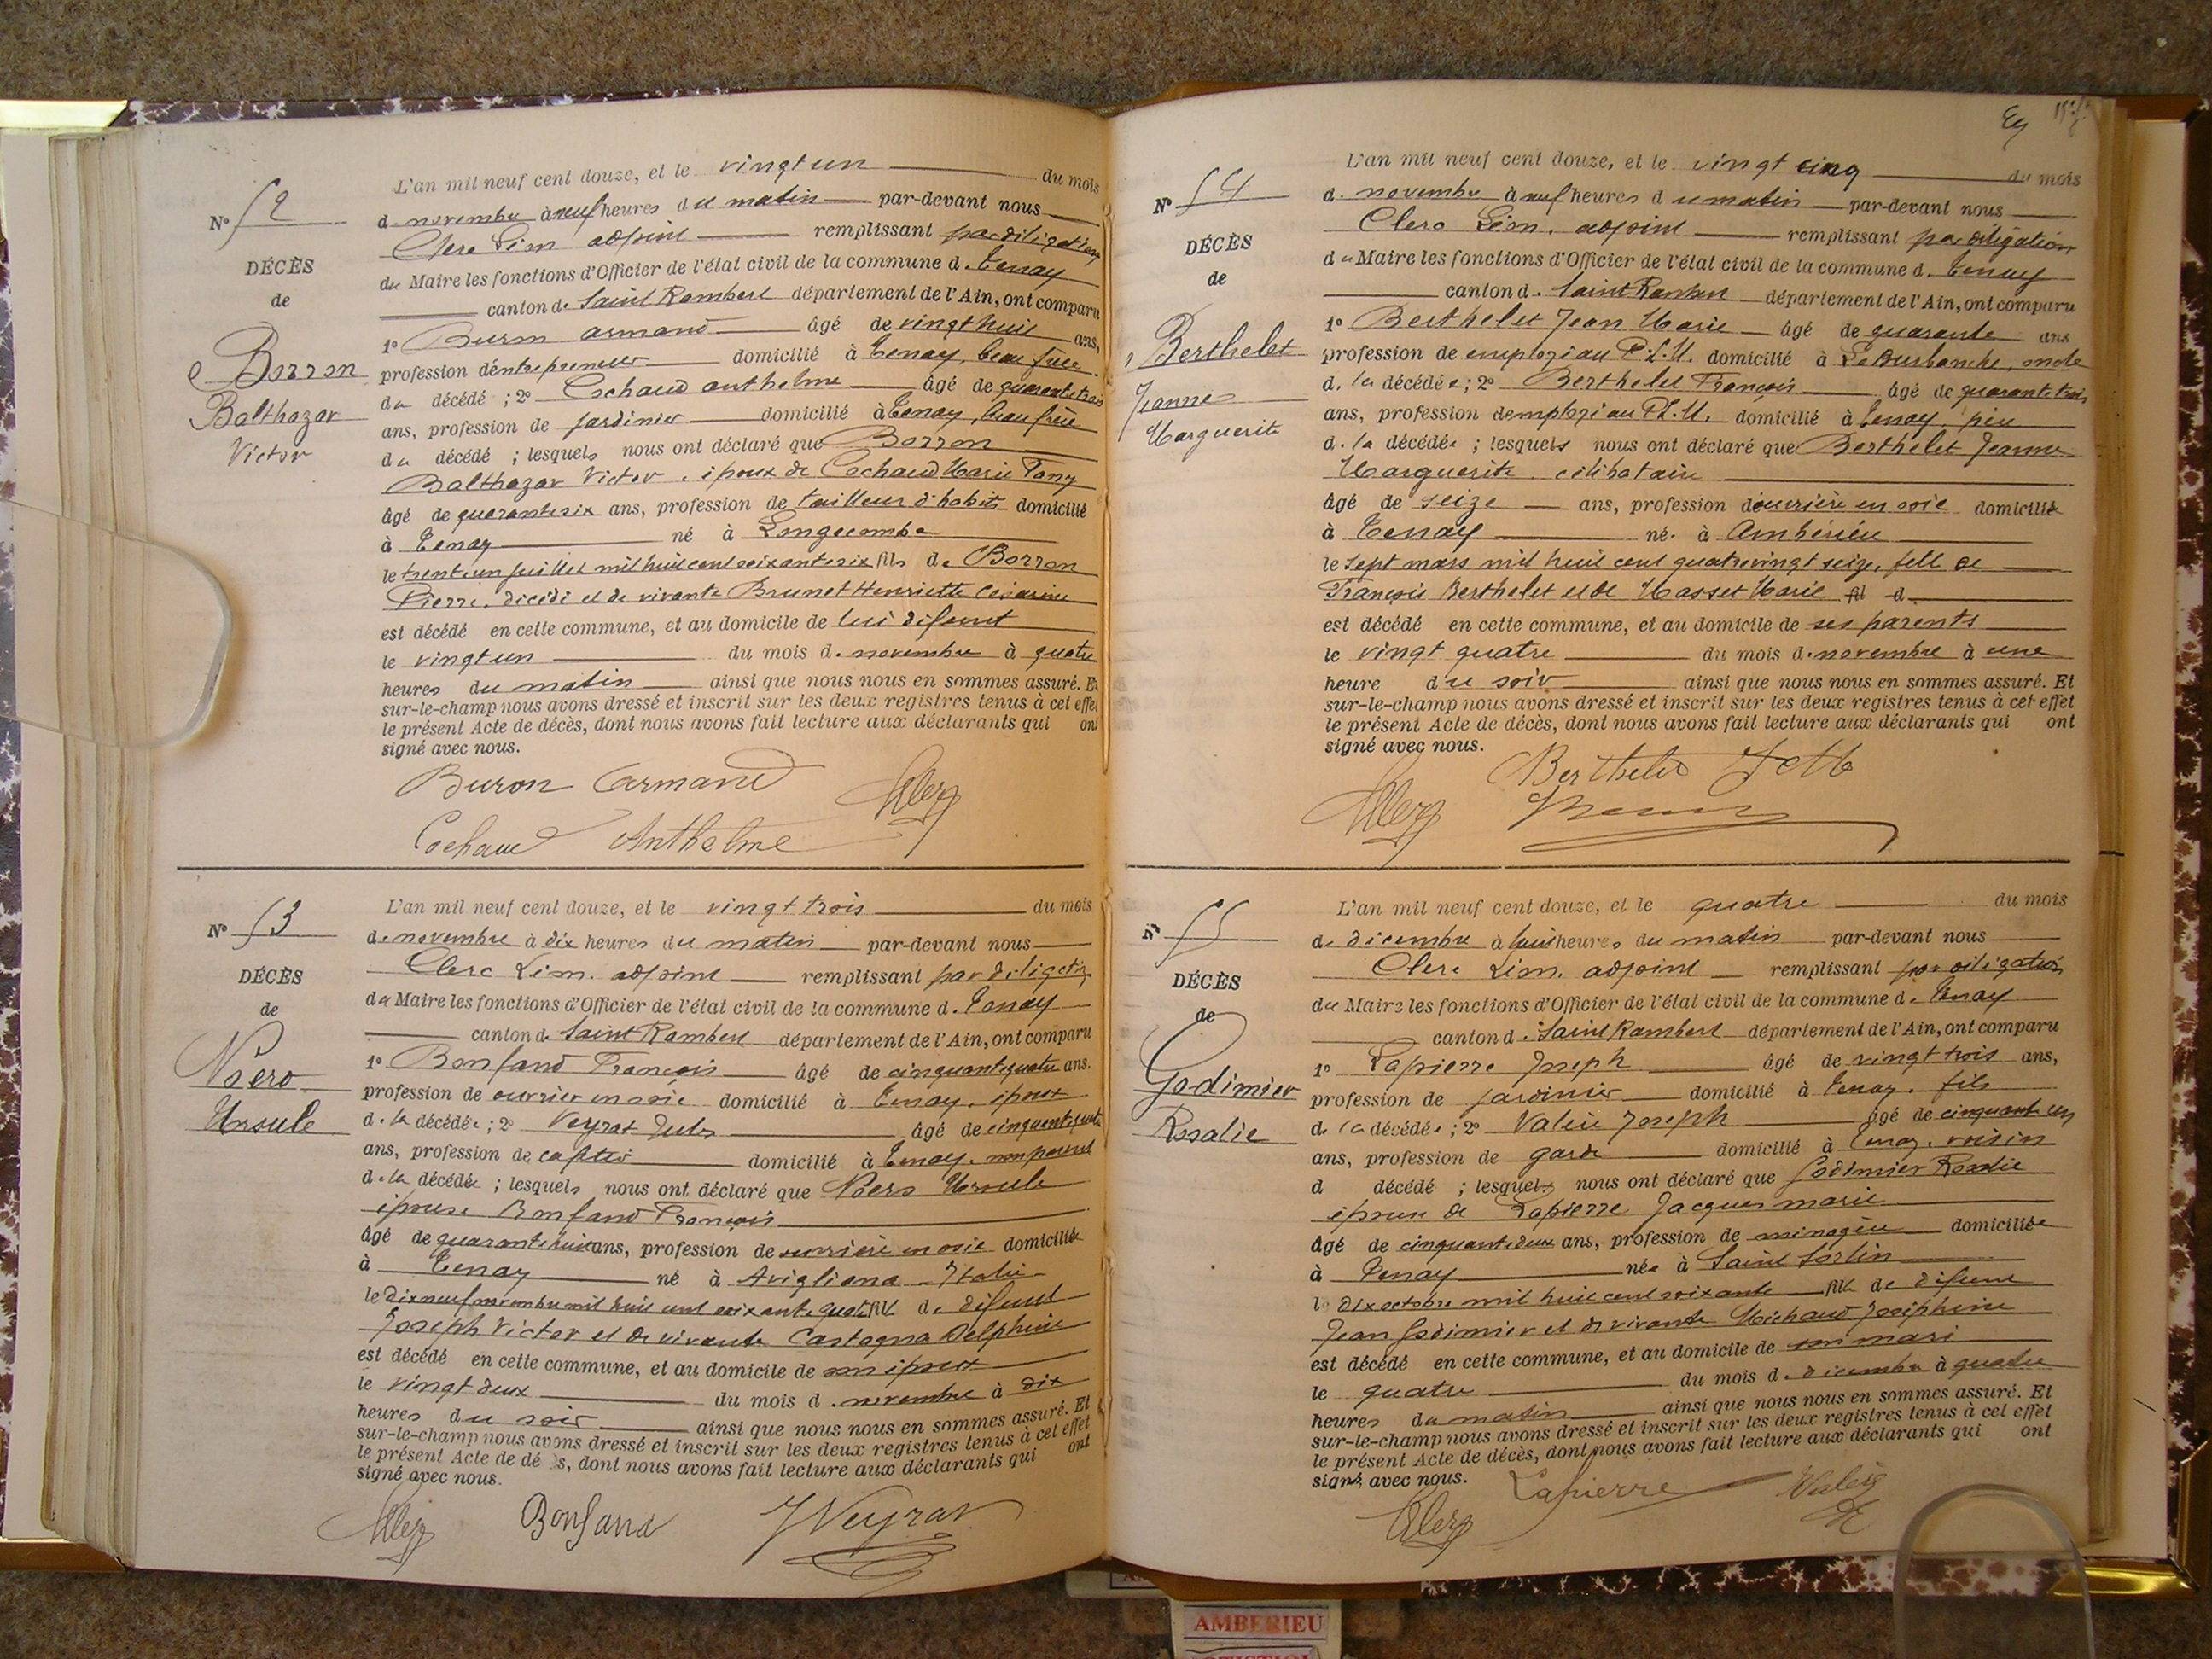 L'an mil neuf cent douze, et le vingt un du mois
N° 52
de novembre à neuf heures du matin par-devant nous
Clerc Léon adjoint remplissant par délégation
DÉCÈS
du Maire les fonctions d'Officier de l'état civil de la commune d. Tenay
de
canton d. Saint Rambert département de l'Ain, ont comparu
1° Buron Armand âgé de vingt huit ans,
Borron
profession d'entrepreneur domicilié à Tenay, beau frère
du décédé ; 2° Cochaud Anthelme âgé de quarante trois
Balthazar
ans, profession de jardinier domicilié à Tenay, beau frère
Victor
du décédé ; lesquels nous ont déclaré que Borron
Balthazar Victor, époux de Cochaud Marie Fany
âgé de quarante six ans, profession de tailleur d'habits domicilié
à Tenay né à Longecombe
le trente un juillet mil huit cent soixante six fils de Borron
Pierre, décédé et de vivante Brunet Henriette Césarine
est décédé en cette commune, et au domicile de lui défunt
le vingt un du mois d. novembre à quatre
heures du matin ainsi que nous nous en sommes assuré. Et
sur-le-champ nous avons dressé et inscrit sur les deux registres tenus à cet effet
le présent Acte de décès, dont nous avons fait lecture aux déclarants qui ont
signé avec nous.
Buron Armand Clerc
Cochaud Anthelme
L'an mil neuf cent douze, et le vingt trois du mois
N° 53
de novembre à dix heures du matin par-devant nous
Clerc Léon. adjoint remplissant par délégation
DÉCÈS
du Maire les fonctions d'Officier de l'état civil de la commune d. Tenay
de
canton d. Saint Rambert département de l'Ain, ont comparu
1° Bonfand François âgé de cinquante quatre ans.
Noero
profession de ouvrier en soie domicilié à Tenay, époux
Ursule
d. la décédée ; 2° Veyrat Jules âgé de
ans, profession de domicilié à Tenay, non parent
d. la décédée ; lesquels nous ont déclaré que Noero Ursule
épouse Bonfand François
âgé de quarante huit ans, profession de ouvrière en soie domiciliée
à Tenay né à Avigliana Italie
le dix neuf novembre mil huit cent soixante quatre fille de défunt
Joseph Victor et de vivante Castagna Delphine
est décédé en cette commune, et au domicile de son époux
le vingt deux du mois d. novembre à dix
heures du soir ainsi que nous nous en sommes assuré. Et
sur-le-champ nous avons dressé et inscrit sur les deux registres tenus à cet effet
le présent Acte de dé s, dont nous avons fait lecture aux déclarants qui ont
signé avec nous.
Clerc Bonfand J Veyrat
L'an mil neuf cent douze, et le vingt cinq du mois
N° 54
d. novembre à neuf heures du matin par-devant nous
Clerc Léon, adjoint remplissant par délégation
DÉCÈS
du Maire les fonctions d'Officier de l'état civil de la commune d. Tenay
de
canton d. Saint Rambert département de l'Ain, ont comparu
1° Berthelet Jean Marie âgé de quarante ans
Berthelet
profession de employé au P.L.M. domicilié à La Burbanche, oncle
d. la décédée ; 2° Berthelet François âgé de quarante trois
Jeanne
ans, profession d'employé au P.L.M. domicilié à Tenay, père
Marguerite
d. la décédée ; lesquels nous ont déclaré que Berthelet Jeanne
Marguerite célibataire
âgé de seize ans, profession d'ouvrière en soie domiciliée
à Tenay née à Ambérieu
le sept mars mil huit cent quatrevingt seize, fille de
François Berthelet et de Masset Marie fil d
est décédé en cette commune, et au domicile de ses parents
le vingt quatre du mois d. novembre à une
heure du soir ainsi que nous nous en sommes assuré. Et
sur-le-champ nous avons dressé et inscrit sur les deux registres tenus à cet effet
le présent Acte de décès, dont nous avons fait lecture aux déclarants qui ont
signé avec nous.
Berthelet
Clerc
L'an mil neuf cent douze, et le quatre du mois
N° 55
de décembre à huit heures du matin par-devant nous
Clerc Léon, adjoint remplissant par délégation
DÉCÈS
du Maire les fonctions d'Officier de l'état civil de la commune d. Tenay
de
canton d. Saint Rambert département de l'Ain, ont comparu
1° Lapierre Joseph âgé de vingt trois ans,
Godimier
profession de jardinier domicilié à Tenay, fils
Rosalie
de la décédée ; 2° Joseph âgé de cinquante un
ans, profession de garde domicilié à Tenay, voisin
d décédé ; lesquels nous ont déclaré que Godimier Rosalie
épouse de Lapierre Jacques marie
âgé de cinquante deux ans, profession de ménagère domiciliée
à Tenay née à Saint Sorlin
le dix octobre mil huit cent soixante fille de défunt
Jean Godimier et de vivante Michaud Joséphine
est décédé en cette commune, et au domicile de son mari
le quatre du mois d. décembre à quatre
heures du matin ainsi que nous nous en sommes assuré. Et
sur-le-champ nous avons dressé et inscrit sur les deux registres tenus à cet effet
le présent Acte de décès, dont nous avons fait lecture aux déclarants qui ont
signé avec nous. Lapierre
Clerc
AMBERIEU